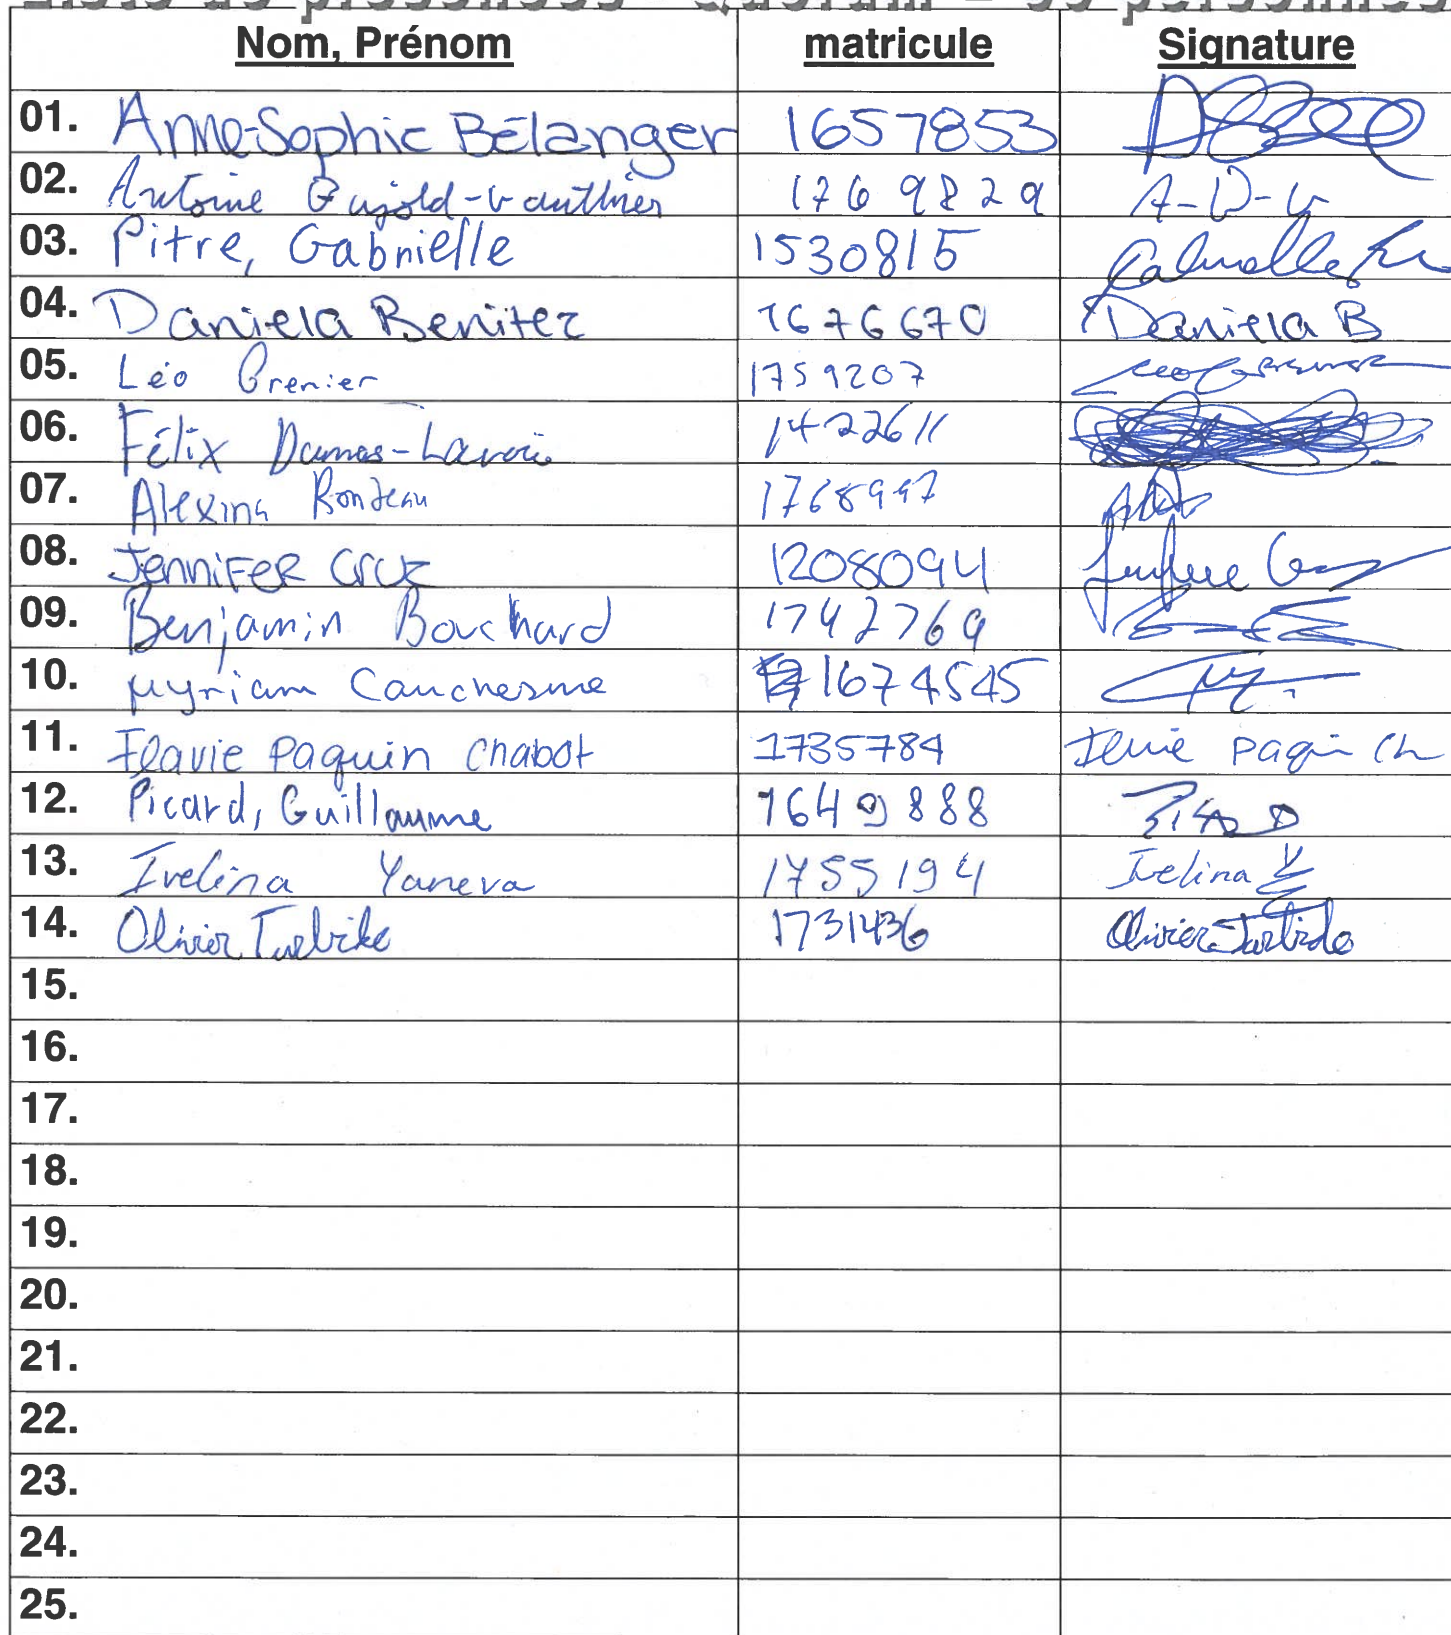 Liste de présences - Quorum = 
Nom, Prénom matricule Signature
01. Anne-Sophie Bélanger 1657853
02. Antoine 1769829 A-D-G
03. Pitre, Gabrielle 1530815 Gabrielle
04. Daniela Benitez 1676670 Daniela B
05. Léo Grenier 1759207
06. Félix Dumas-Lavoie 1422611
07. Alexina Bondeau 1768997
08. JENNIFER Cruz 1208094
09. Benjamin Bouchard 1742769
10. Myriam Cauchesme 1674545
11. Flavie Paquin Chabot 1735784 Paqin Ch
12. Picard, Guillaume 1649888
13. Ivelina Yaneva 1755194 Ivelina Y
14. Olivier Turbide 1731436 Olivier Turbide
15.
16.
17.
18.
19.
20.
21.
22.
23.
24.
25.